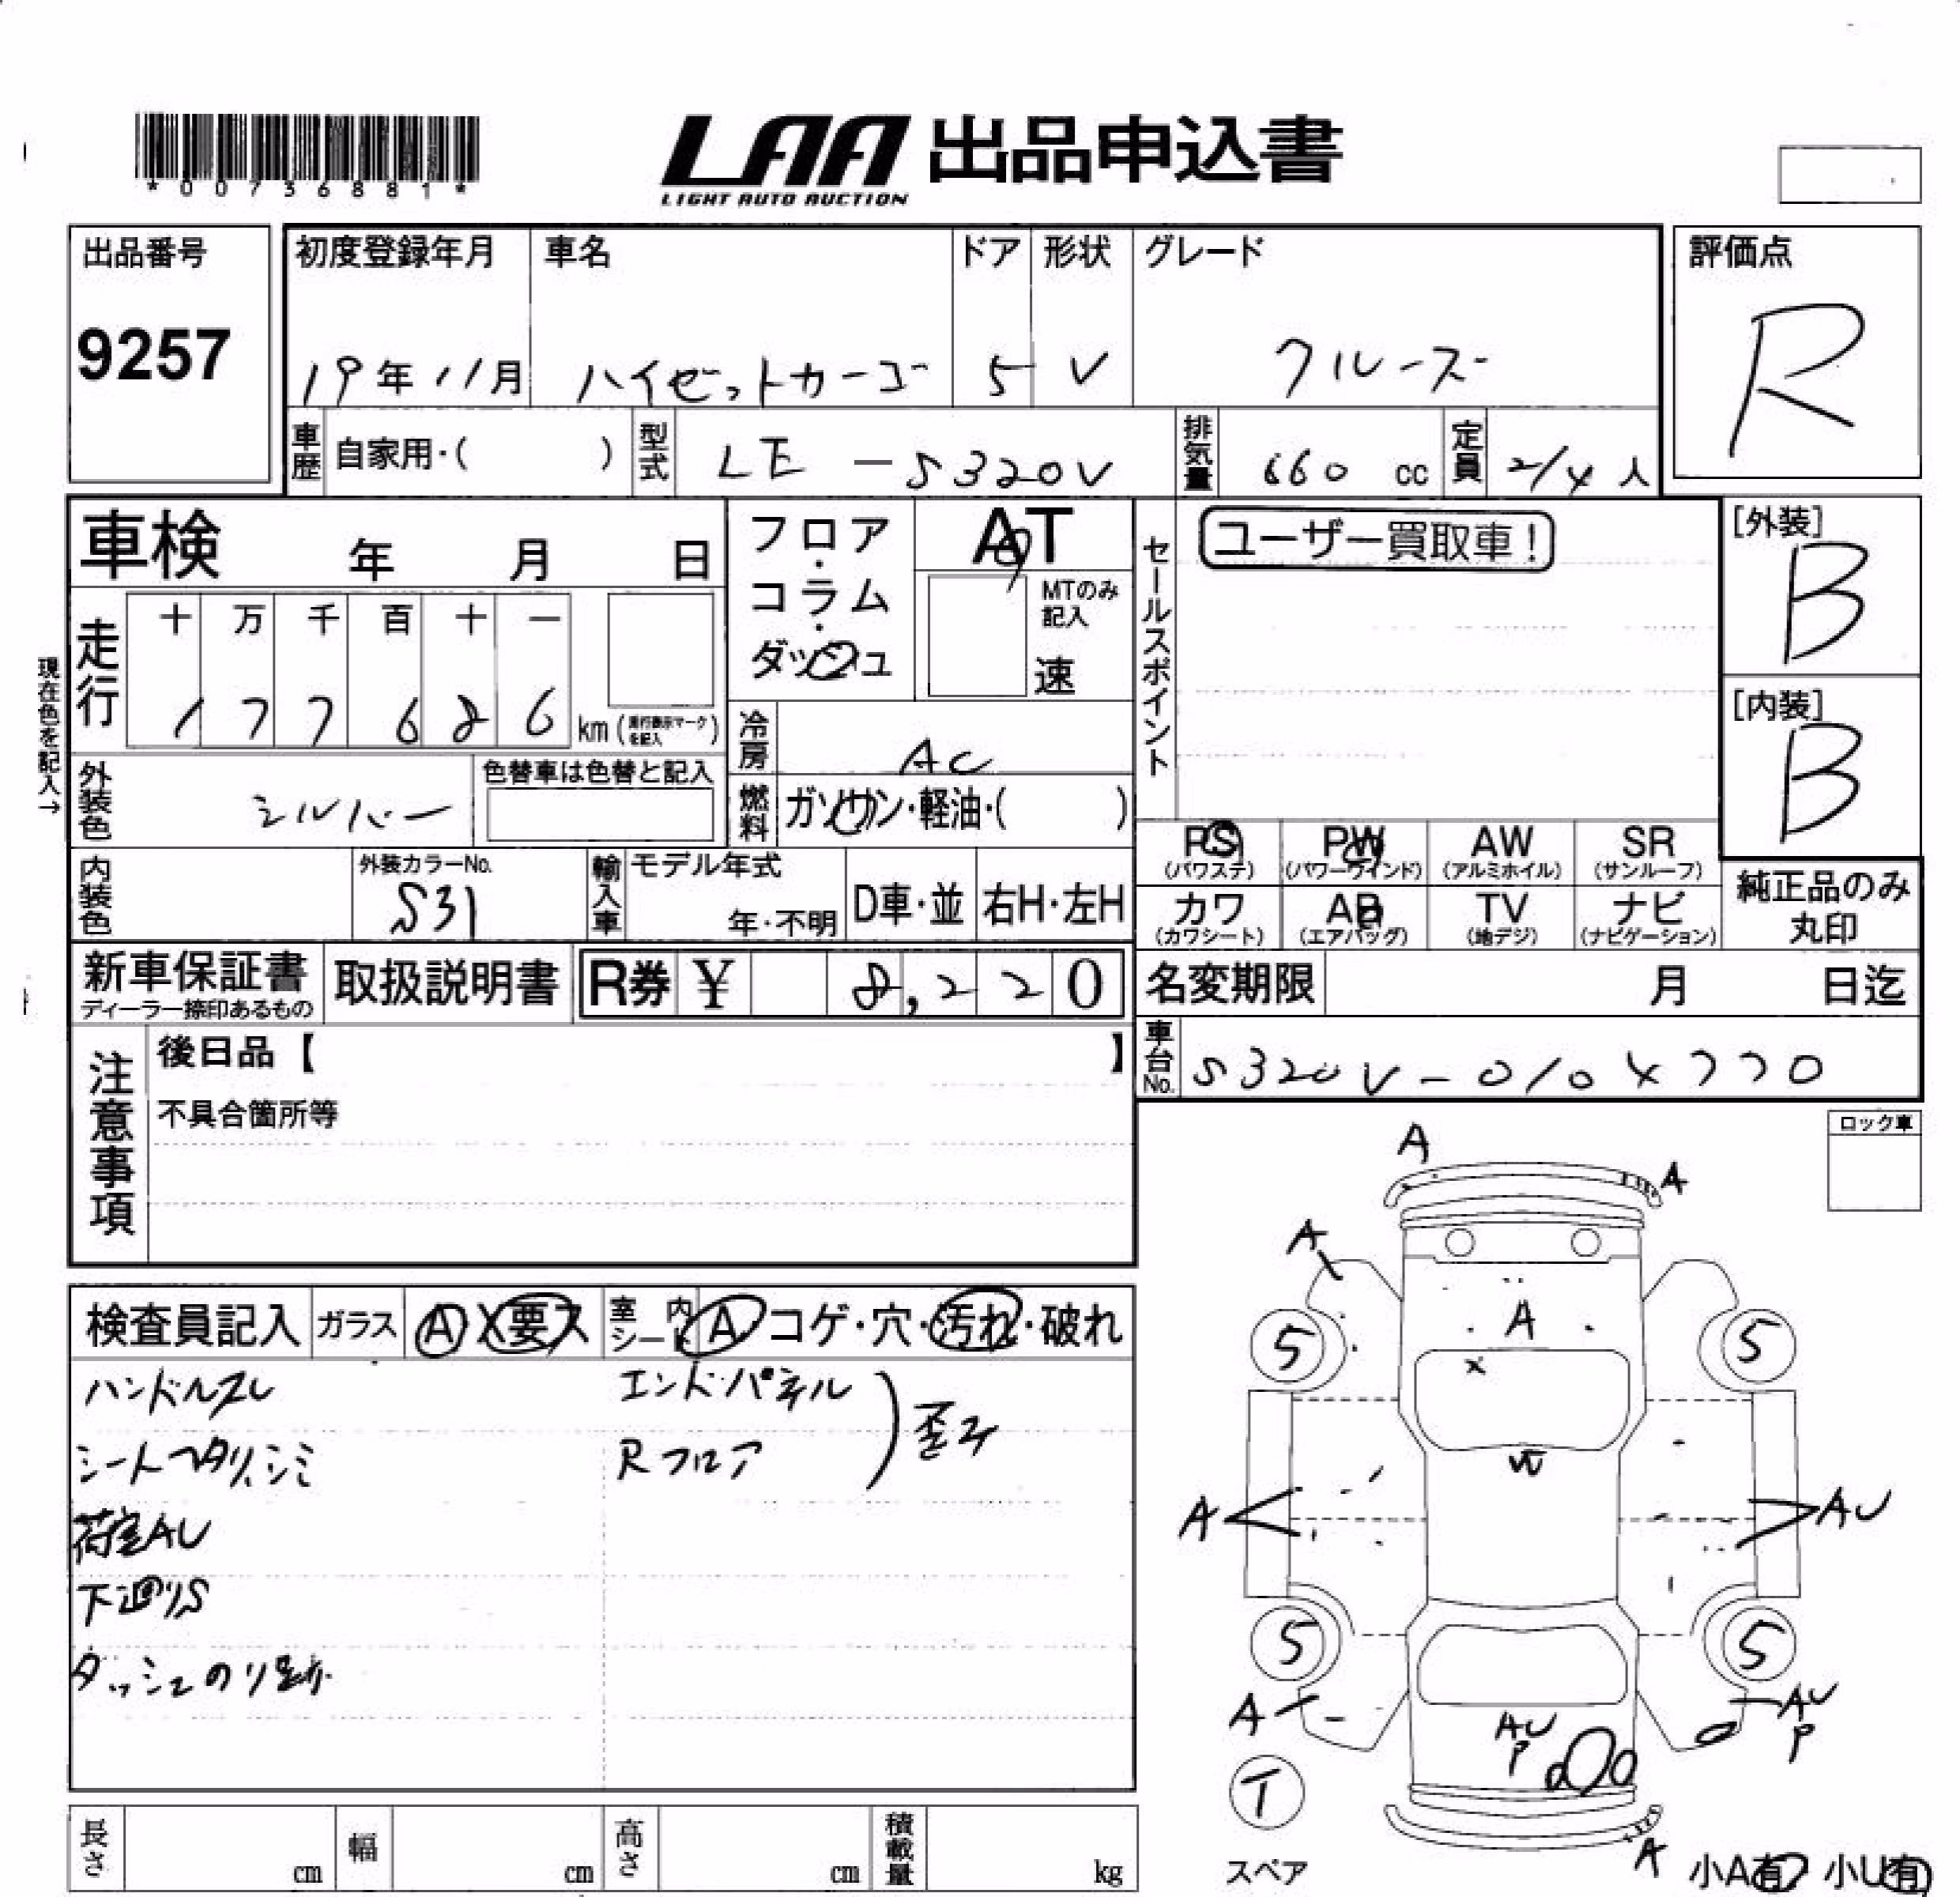 *00736881*
LAA 出品申込書
LIGHT AUTO AUCTION
出品番号
9257
初度登録年月
19年11月
車名
ハイゼットカーゴ
ドア
5
形状
V
グレード
クルーズ
評価点
R
車歴 自家用・( )
型式 LE - S320V
排気量 660 cc
定員 2/4 人
車検 年 月 日
フロア・コラム・ダッシュ
AT
MTのみ記入
速
セールスポイント
ユーザー買取車!
[外装]
B
[内装]
B
現在色を記入→
走行
十 万 千 百 十 一
1 7 7 6 2 6 km (走行表示マークを記入)
冷房 AC
外装色 シルバー
色替車は色替と記入
燃料 ガソリン・軽油・( )
PS (パワステ)
PW (パワーウインド)
AW (アルミホイル)
SR (サンルーフ)
カワ (カワシート)
AB (エアバッグ)
TV (地デジ)
ナビ (ナビゲーション)
純正品のみ丸印
内装色
外装カラーNo.
S31
輸入車
モデル年式
年・不明
D車・並
右H・左H
新車保証書
ディーラー捺印あるもの
取扱説明書
R券 ¥ 8,220
名変期限 月 日迄
車台No. S320V-0104770
注意事項
後日品【 】
不具合箇所等
ロック車
検査員記入
ガラス A X 要ス
室内シート A コゲ・穴・汚れ・破れ
ハンドルスレ
シートヘタリ、シミ
荷室AU
下廻りS
ダッシュのり跡
エンドパネル
Rフロア
歪み
A
A
A
A
5
5
X
W
A
AU
5
5
A
AU
P
AU
P
T
スペア
A
小A有 小U有
長さ cm
幅 cm
高さ cm
積載量 kg